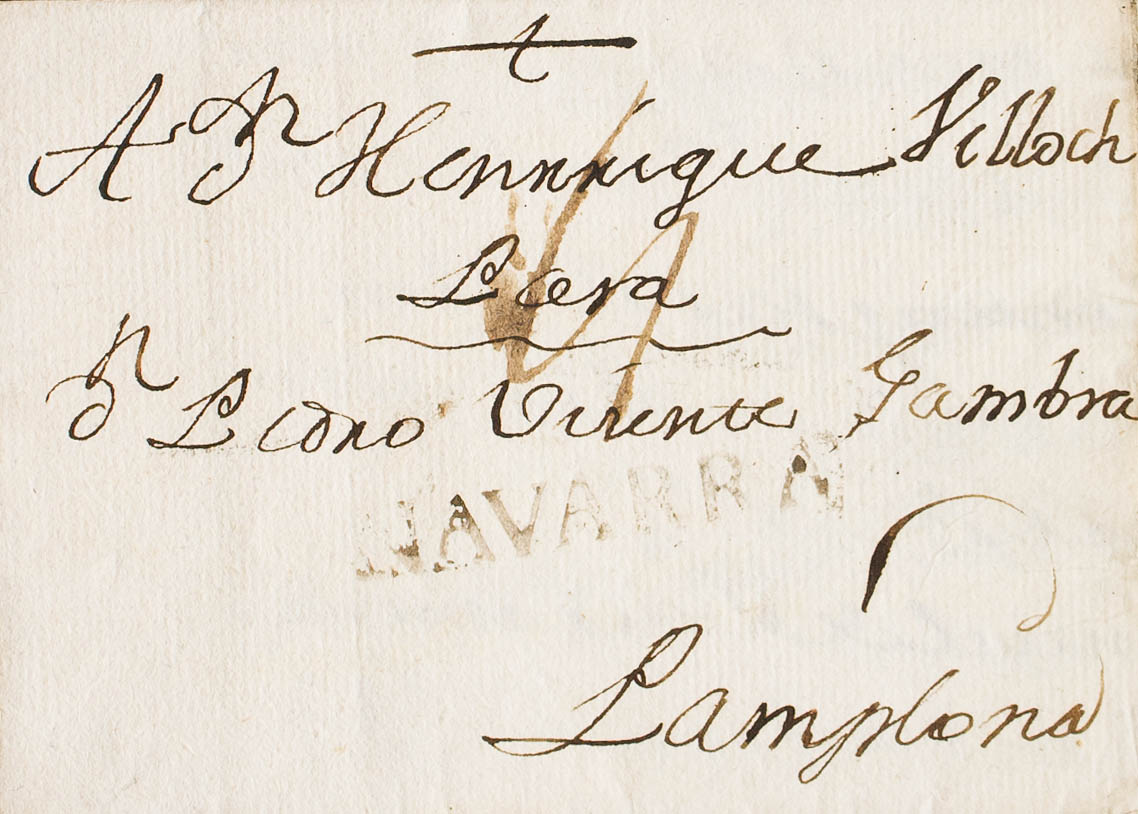 A Dn Henrrique Villoch
Para
Dn Pedro Visente Gambra
NAVARRA
Pamplona